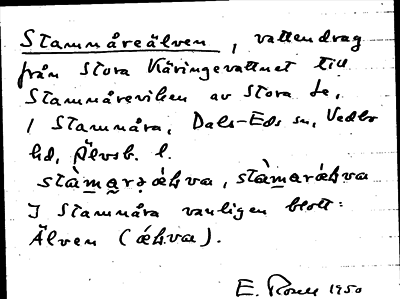 Stamnåreälven, vattendrag
från Stora Käringevattnet till
Stamnåreviken av Stora Le,
i Stamnåra, Dals-Eds sn, Vedbo
hd, Älvsb. l.
stàmarə ǽʟva, stàmarǽʟva
I Stamnåra vanligen blott:
Älven (ǽʟva).
E. 1950